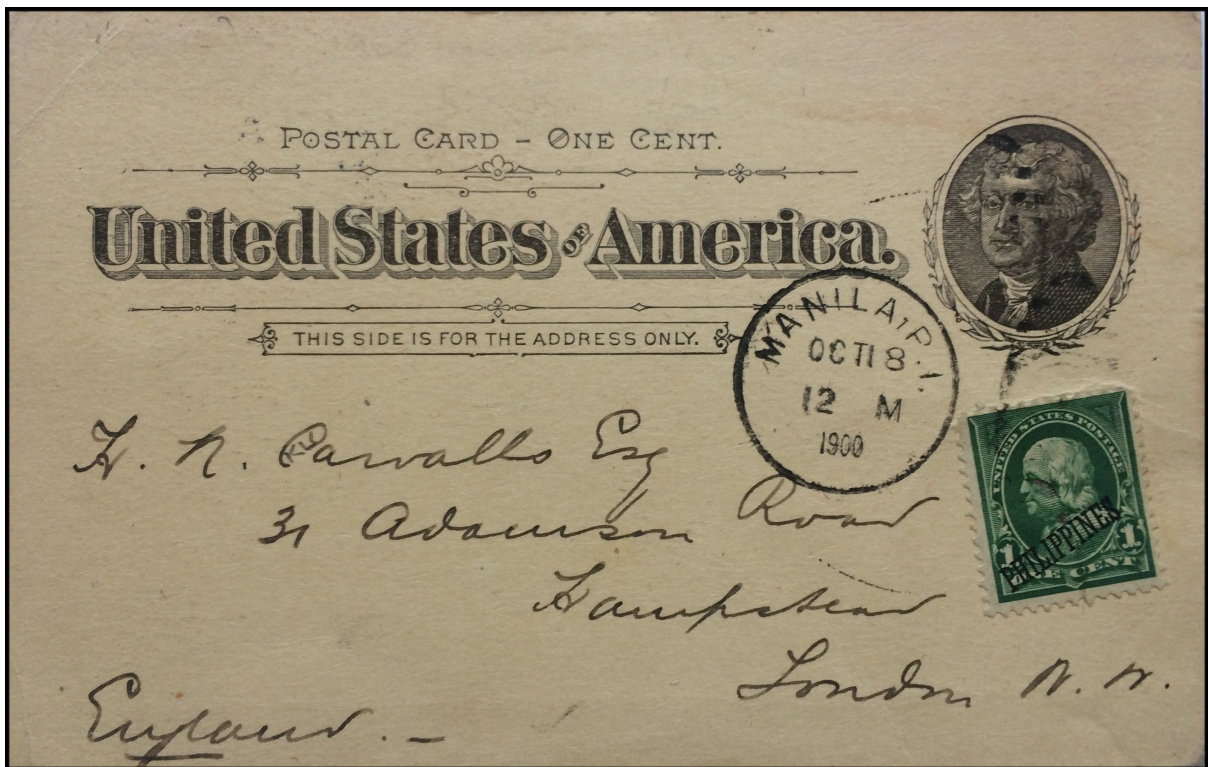 POSTAL CARD – ONE CENT.
United States OF America.
THIS SIDE IS FOR THE ADDRESS ONLY.
MANILA, P.I.
OCT 18
12 M
1900
UNITED STATES POSTAGE
1 ONE CENT 1
PHILIPPINES
H. N. Carvalho Esq
31 Adamson Road
Hampstead
London N. W.
England. -